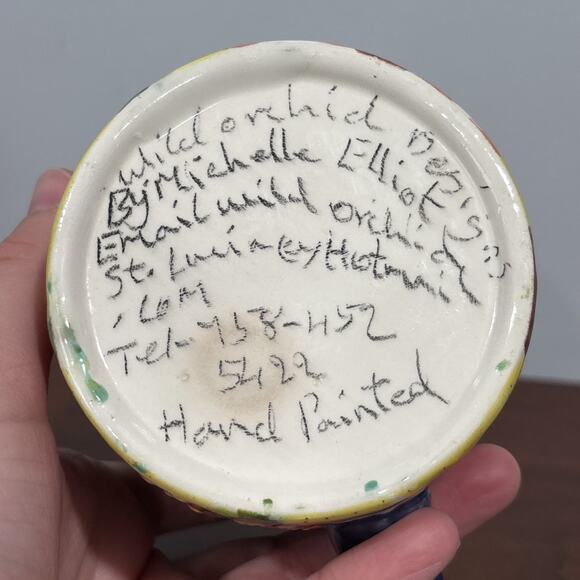 Wild orchid Designs
By Michelle Elliot
Email wild orchid
St. Lucia@Hotmail
.com
Tel- 758-452
5422
Hand Painted